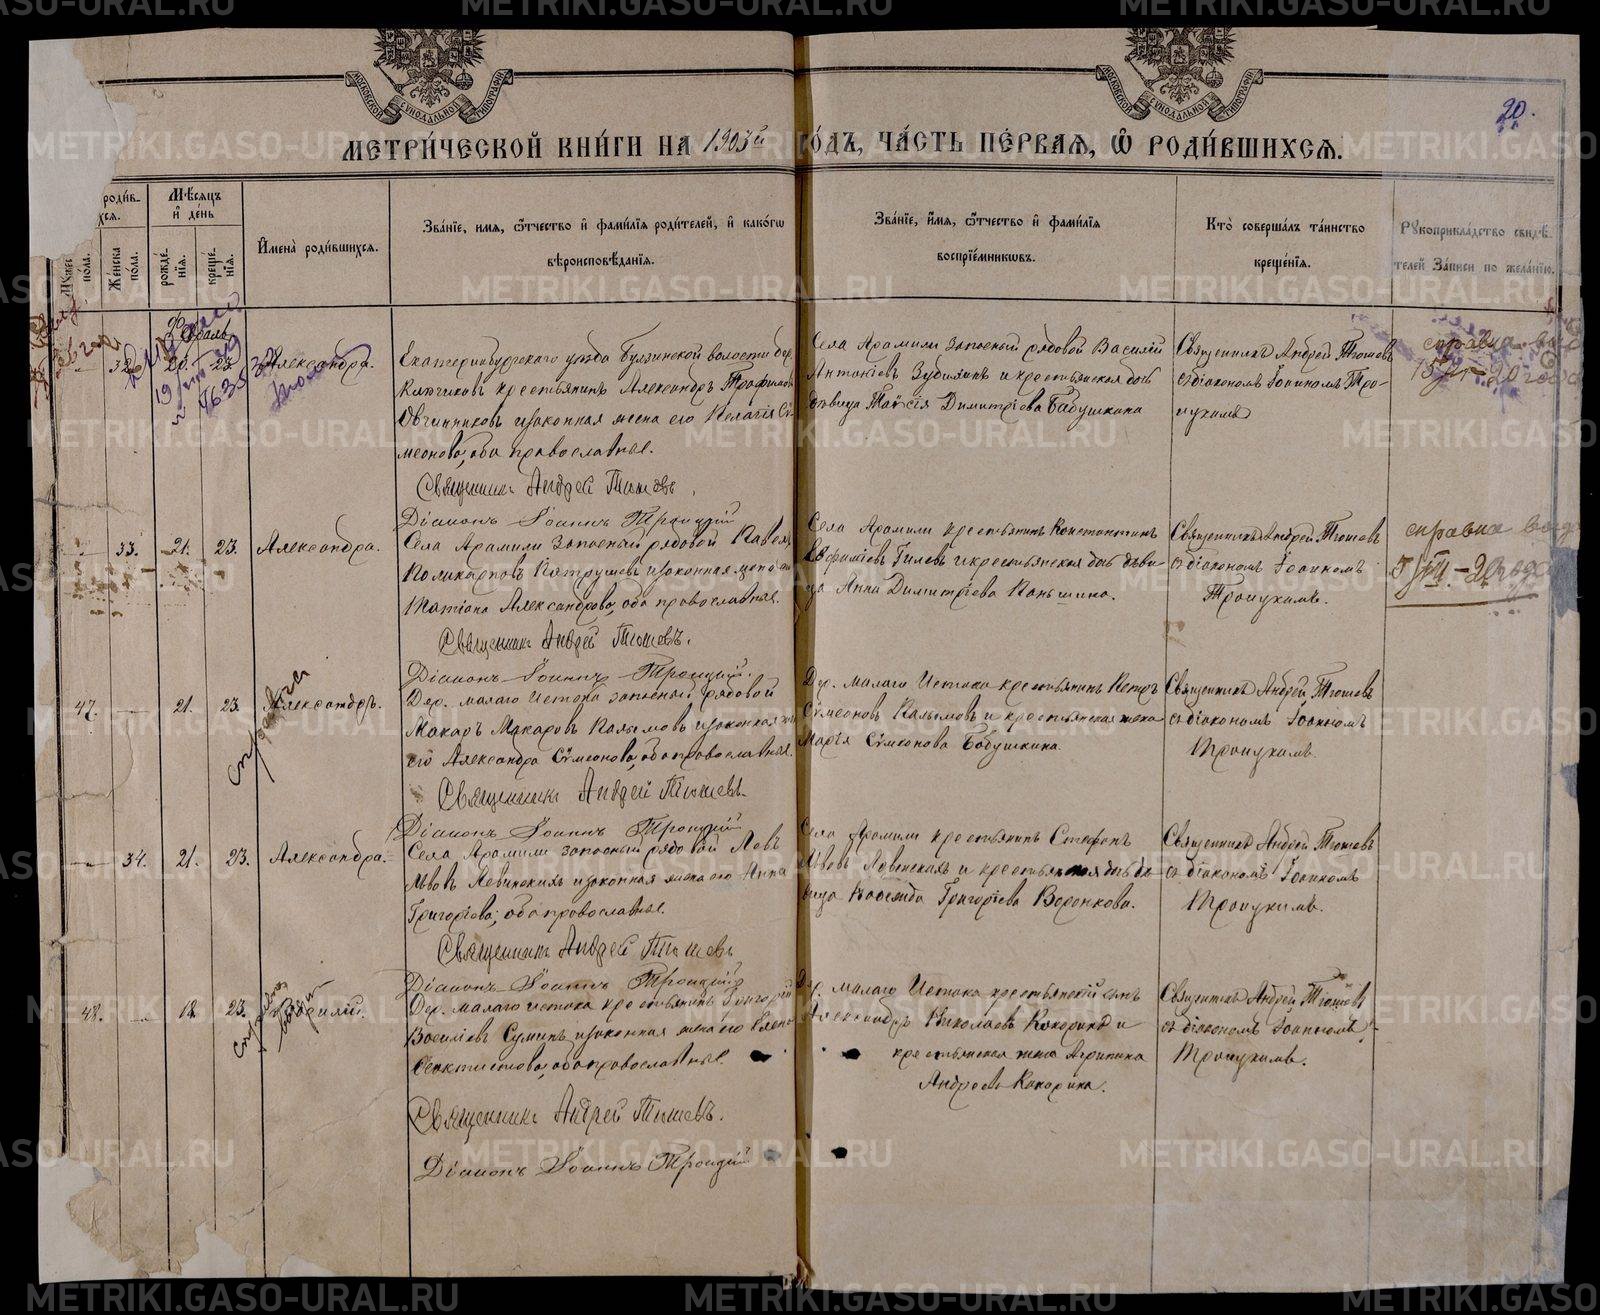 20.
МОСКОВСКОЙ СѴНОДАЛЬНОЙ ТИПОГРАФІИ
МОСКОВСКОЙ СѴНОДАЛЬНОЙ ТИПОГРАФІИ
МЕТРИ́ЧЕСКОЙ КНИ́ГИ НА 1903й ГО́ДЪ, ЧА́СТЬ ПЕ́РВАѦ, Ѽ РОДИ́ВШИХСѦ.
роди́в- хсѧ.
Му́жеска по́ла.
Же́нска по́ла.
Мѣ́сѧцъ и҆ де́нь
рожде́- нїѧ.
креще́- нїѧ.
И҆мена̀ роди́вшихсѧ.
Зва́нїе, и҆́мѧ, ѻ҆́тчество и҆ фами́лїѧ роди́телей, и҆ како́гѡ
вѣроисповѣ́данїѧ.
Зва́нїе, и҆́мѧ, ѻ҆́тчество и҆ фами́лїѧ
воспрїе́мникѡвъ.
Кто̀ соверша́лъ та́инство
креще́нїѧ.
Рꙋкоприкла́дство свидѣ́-
телей за́писи по жела́нїю.
Февраль
32. 20. 23. Александра.
Екатеринбургскаго уѣзда Булзинской волости дер.
Ключиковъ крестьянинъ Александръ Трофимовъ
Овчинниковъ и законная жена его Пелагія Сѵ-
меонова; оба православные.
Священникъ Андрей Тюшевъ.
Діаконъ Іоаннъ Троицкій
Села Арамили запасный рядовой Василій
Антоніевъ Зубилинъ и крестьянская дочь
дѣвица Таисія Димитріева Бабушкина
Священникъ Андрей Тюшевъ
съ діакономъ Іоанномъ Тро-
ицкимъ
справка выд
33. 21. 23. Александра.
Села Арамили запасный рядовой Павелъ
Поликарповъ Патрушевъ и законная жена его
Татіана Александрова; оба православные.
Священникъ Андрей Тюшевъ.
Діаконъ Іоаннъ Троицкій.
Села Арамили крестьянинъ Константинъ
Евфиміевъ Гилевъ и крестьянская дочь дѣви-
ца Анна Димитріева Паньшина.
Священникъ Андрей Тюшевъ
съ діакономъ Іоанномъ
Троицкимъ.
справка выд
47. 21. 23. Александръ.
справка
Дер. малаго Истока запасный рядовой
Макаръ Макаровъ Калымовъ и законная жена
его Александра Сѵмеонова; оба православные.
Священникъ Андрей Тюшевъ.
Діаконъ Іоаннъ Троицкій
Дер. малаго Истока крестьянинъ Петръ
Сѵмеоновъ Калымовъ и крестьянская жена
Марія Сѵмеонова Бабушкина.
Священникъ Андрей Тюшевъ
съ діакономъ Іоанномъ
Троицкимъ.
34. 21. 23. Александра.
Села Арамили запасный рядовой Левъ
Львовъ Левинскихъ и законная жена его Анна
Григоріева; оба православные.
Священникъ Андрей Тюшевъ
Діаконъ Іоаннъ Троицкій
Села Арамили крестьянинъ Стефанъ
Львовъ Левинскихъ и крестьянская дочь дѣ-
вица Надежда Григоріева Воронкова.
Священникъ Андрей Тюшевъ
съ діакономъ Іоанномъ
Троицкимъ.
48. 18. 23. Василій.
Дер. малаго истока крестьянинъ Григорій
Василіевъ Суминъ и законная жена его Елена
Ѳеоктистова; оба православные.
Священникъ Андрей Тюшевъ.
Діаконъ Іоаннъ Троицкій
Дер. малаго Истока крестьянскій сынъ
Александръ Николаевъ Кокоринъ и
крестьянская жена Агрипина
Андреева Кокорина.
Священникъ Андрей Тюшевъ
съ діакономъ Іоанномъ
Троицкимъ.
METRIKI.GASO-URAL.RU